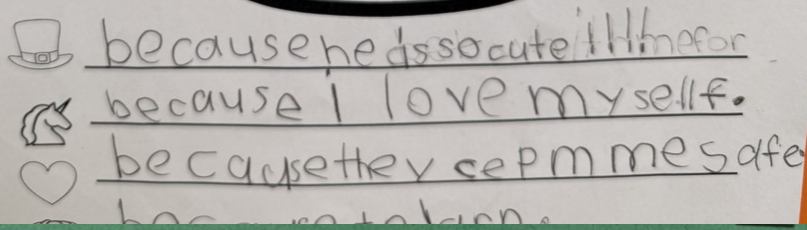 because he is so cute
because i love mysellf.
becayse they cepm me safe